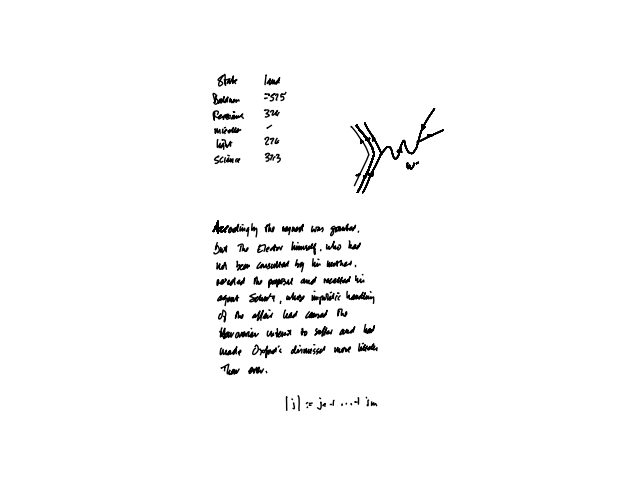 State land
-575
Revenue 324
-
light 276
Science 393
W-
Accordingly the request was granted.
But the Elector himself, who had
not been consulted by his mother,
vetoed the proposal and recalled his
agent Schutz, whose impolitic handling
of the affair had caused the
Hanoverian interest to suffer and had
made Oxford's dismissal more likely
than ever.
|j| := je + ... + jm